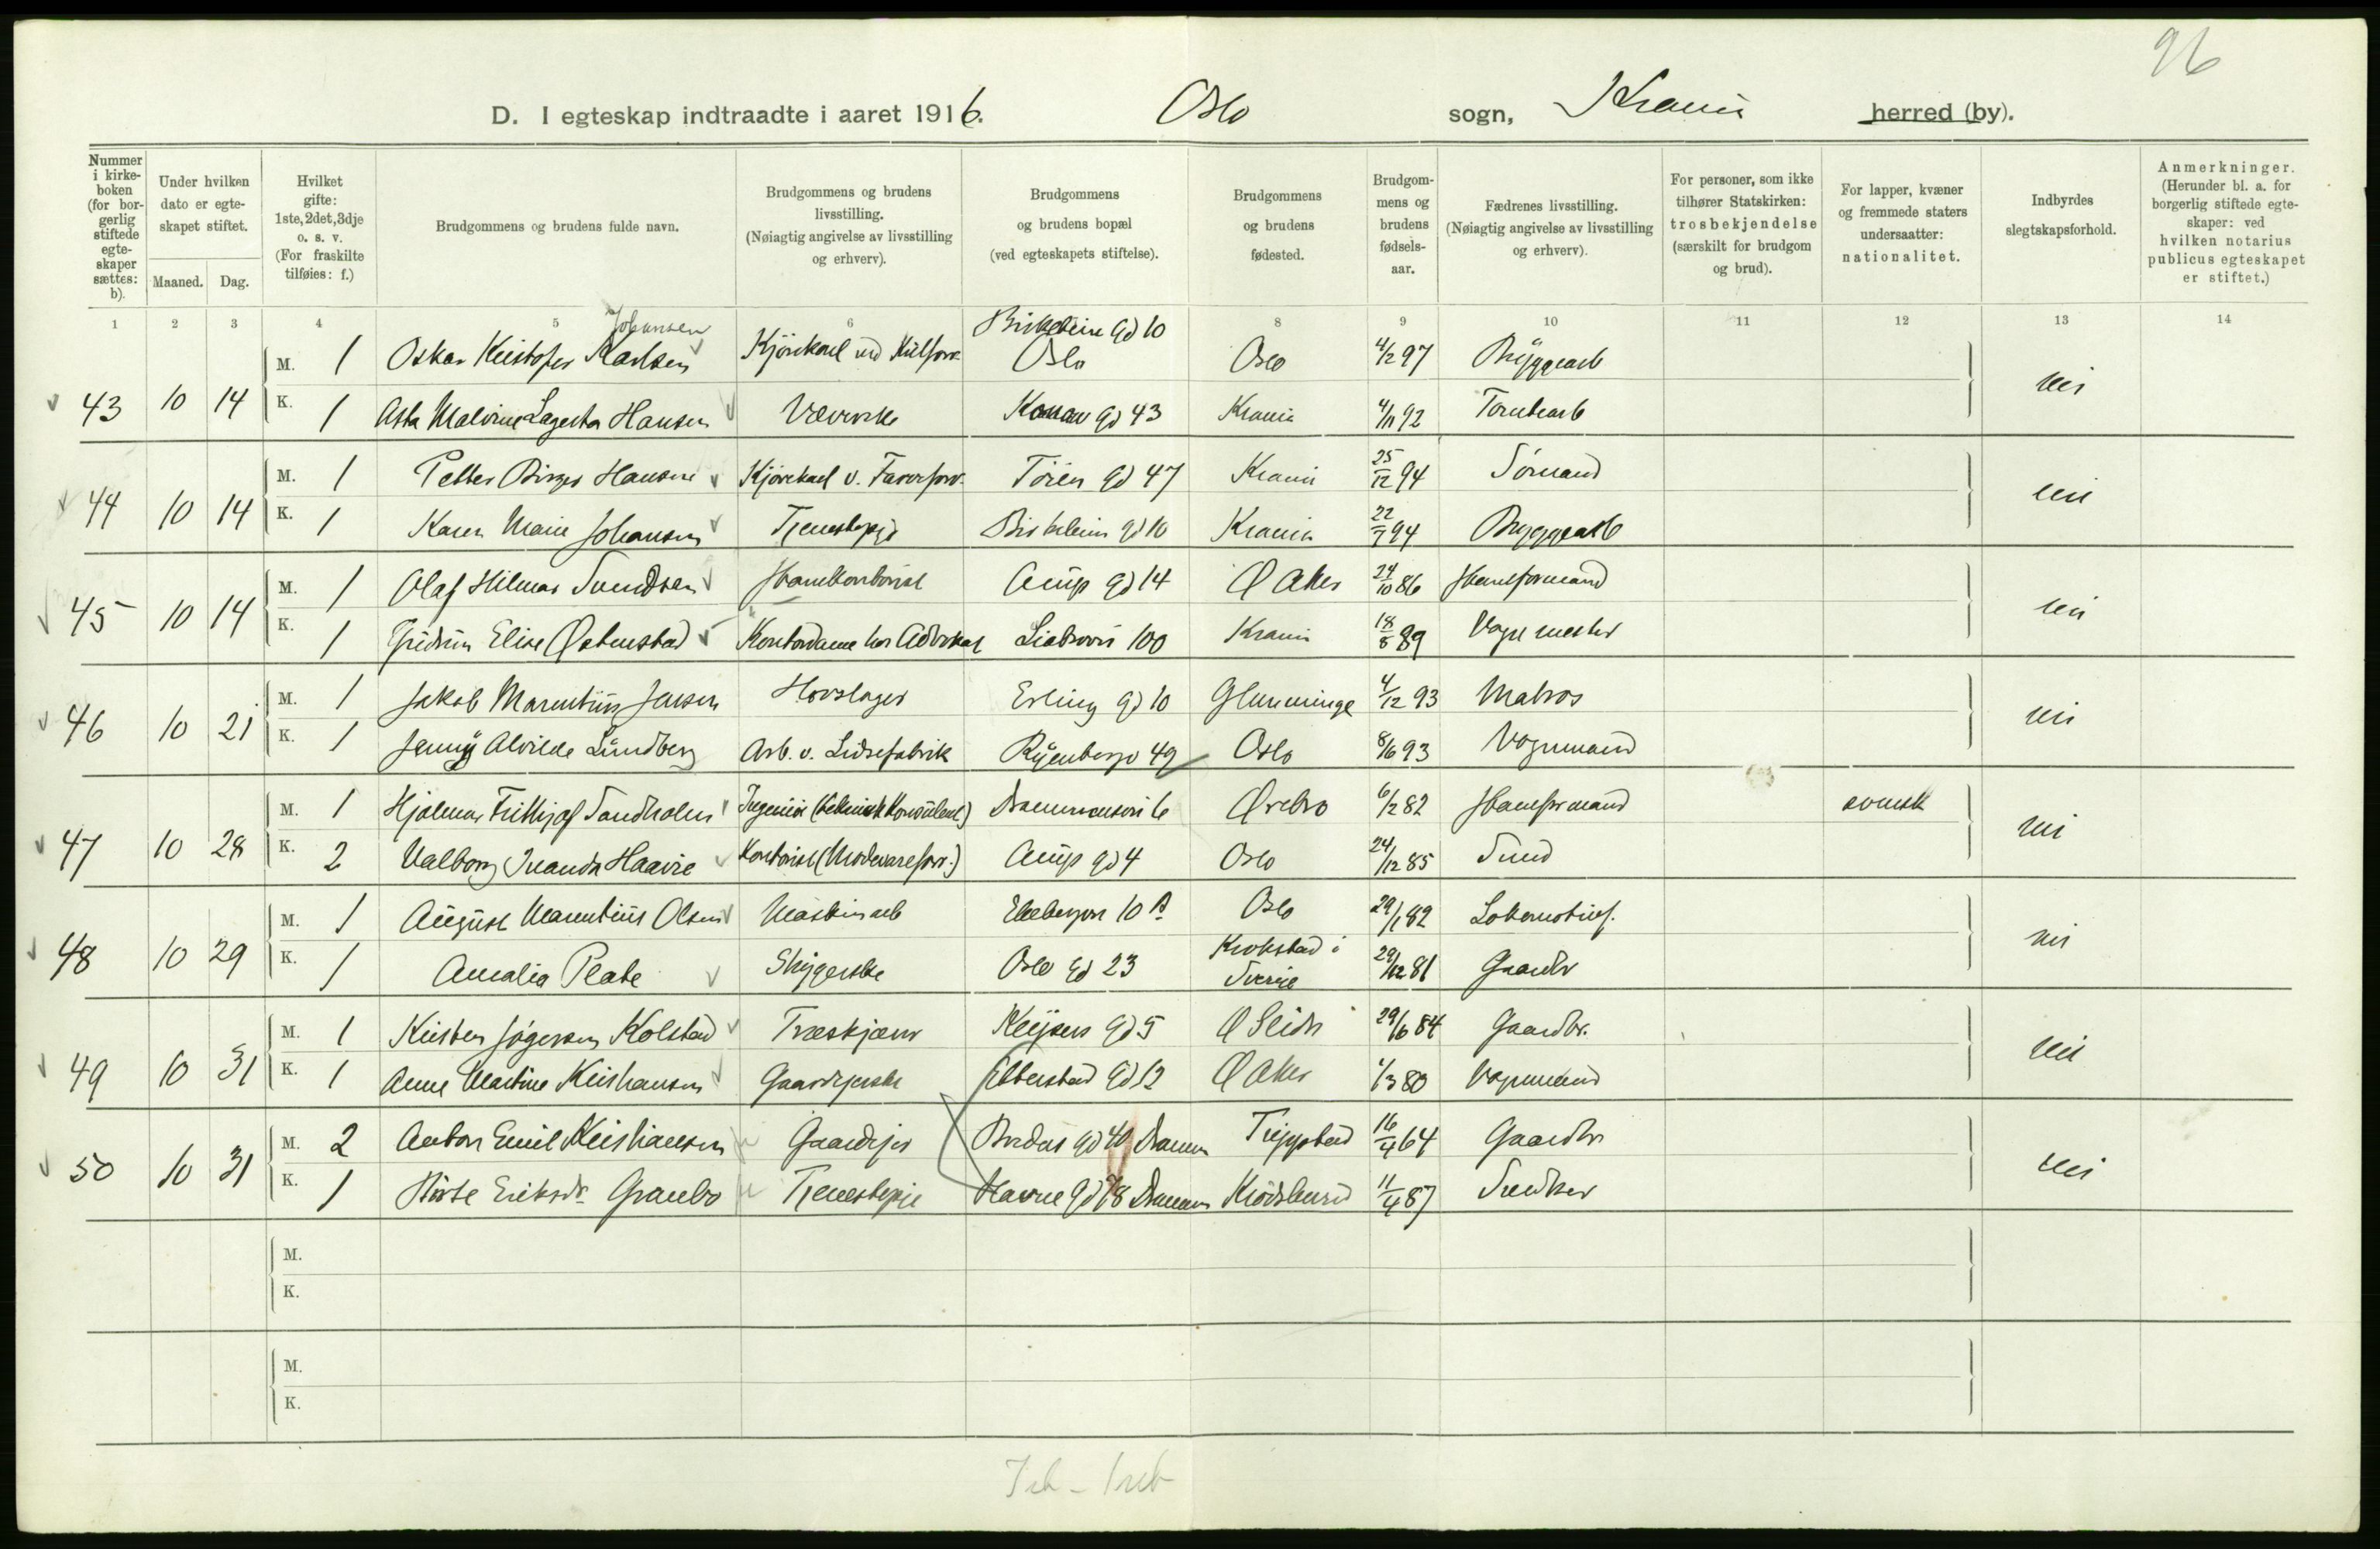 96
D. I egteskap indtraadte i aaret 1916. Oslo sogn, Krania herred (by).
Nummer i kirkeboken (for borgerlig stiftede egteskaper sættes: b).
Under hvilken dato er egteskapet stiftet.
Maaned. Dag.
Hvilket gifte: 1ste, 2det, 3dje o. s. v. (For fraskilte tilføies: f.)
Brudgommens og brudens fulde navn.
Brudgommens og brudens livsstilling. (Nøiagtig angivelse av livsstilling og erhverv).
Brudgommens og brudens bopæl (ved egteskapets stiftelse).
Brudgommens og brudens fødested.
Brudgommens og brudens fødselsaar.
Fædrenes livsstilling. (Nøiagtig angivelse av livsstilling og erhverv).
For personer, som ikke tilhører Statskirken: trosbekjendelse (særskilt for brudgom og brud).
For lapper, kvæner og fremmede staters undersaatter: nationalitet.
Indbyrdes slegtskapsforhold.
Anmerkninger. (Herunder bl. a. for borgerlig stiftede egteskaper: ved hvilken notarius publicus egteskapet er stiftet.)
1 2 3 4 5 6 8 9 10 11 12 13 14
Johansen Birkebein Gd 10
M. 1 Oskar Kristofer Karlsen Kjørekarl ved Oslo Oslo 4/2 97 Bryggearb
43 10 14 K. 1 Asta Malvine Lagertha Hansen Væverske Gd 43 Krania 4/11 92 Tomtearb nei
M. 1 Petter Birger Hansen Kjørekarl v. Tøien Gd 47 Krania 25/12 94 Sømand
44 10 14 K. 1 Karen Marie Johansen Tjenestepige Birkebein Gd 10 Krania 22/7 94 Bryggearb nei
M. 1 Olaf Hilmar Svendsen Bankkontorist Arups Gd 14 Ø Aker 24/10 86 Baneformand
45 10 14 K. 1 Gudrun Elise Østenstad Kontordame hos Advokat Ljabrovn 100 Krania 18/8 89 Vognmester nei
M. 1 Jakob Marentius Jensen Hovslager Erling Gd 10 Glemminge 4/12 93 Matros
46 10 21 K. 1 Jenny Alvilde Lundberg Arb. v. Lidsefabrik Ryenbergv 49 Oslo 8/6 93 Vognmand nei
M. 1 Hjalmar Frithjof Sandholm Ingeniør (teknisk Konsulent) Drammensvn 6 Ørebro 6/2 82 Baneformand svensk
47 10 28 K. 2 Valborg Haavie Kontorist (Modevareforr.) Arups Gd 4 Oslo 24/12 85 Smed nei
M. 1 August Marentius Olsen Maskinarb Ekebergvn 10 A Oslo 29/1 82 Lokomotivf.
48 10 29 K. 1 Amalia Plate Strygerske Oslo Gd 23 Krokstad i Sverige 29/12 81 Gaardbr nei
M. 1 Kristen Jørgensen Kolstad Træskjærer Keysers Gd 5 Ø Slidre 29/6 84 Gaardbr.
49 10 31 K. 1 Anne Martine Kristiansen Gaardejerske Gd 12 Ø Aker 1/3 80 Vognmand nei
M. 2 Anton Emil Kristiansen Gaardejer Gd 40 Dramm Trygstad 16/4 64 Gaardbr
50 10 31 K. 1 Birte Eriksdr. Granbo Tjenestepige Havne Gd 78 Dramm Krødsherred 11/4 87 Snedker nei
M.
K.
M.
K.